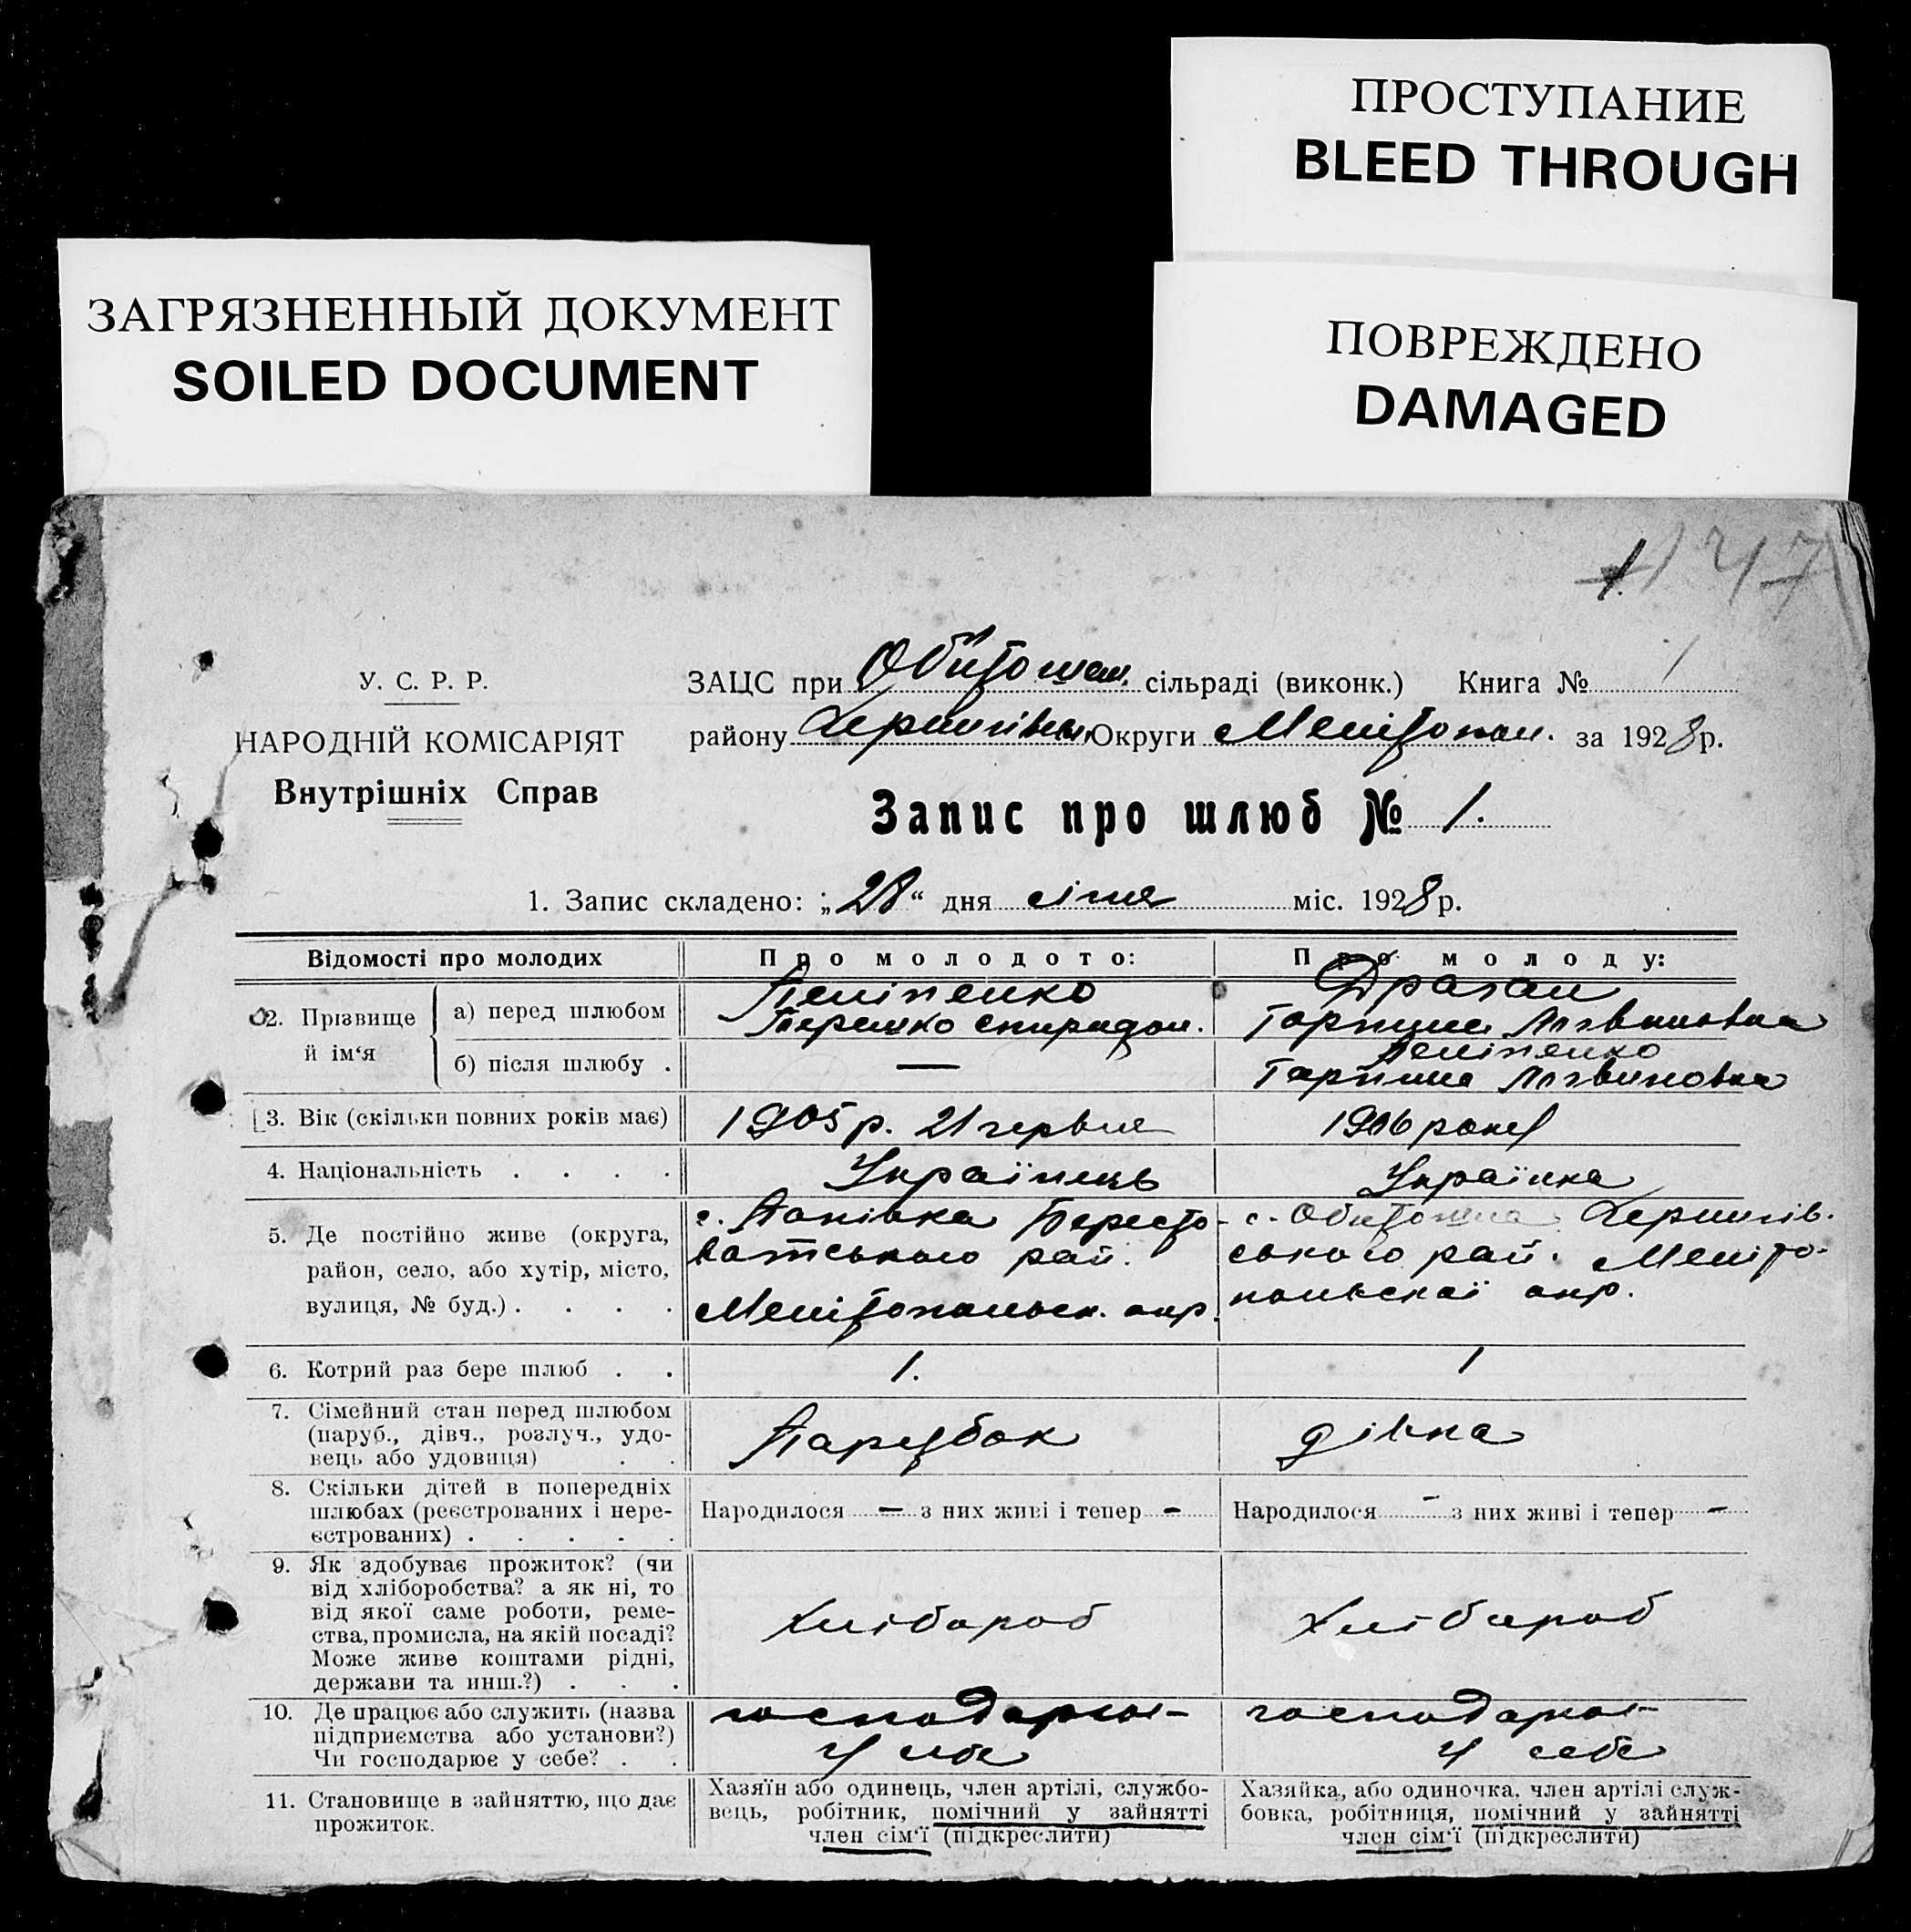 ПРОСТУПАНИЕ
BLEED THROUGH
ЗАГРЯЗНЕННЫЙ ДОКУМЕНТ
SOILED DOCUMENT
ПОВРЕЖДЕНО
DAMAGED
1.
У. С. Р. Р.
НАРОДНІЙ КОМІСАРІЯТ
Внутрішніх Справ
ЗАЦС при Обіточен. сільраді (виконк.) Книга № 1
району Чернигівськ. Округи Мелітопол. за 1928 р.
Запис про шлюб № 1.
1. Запис складено: „28“ дня січня міс. 1928 р.
Відомості про молодих
Про молодого:
Про молоду:
2. Прізвище й ім‘я
а) перед шлюбом
Терешко Спиридон.
Драган
Горпина Логвиновна
б) після шлюбу .
—
Гарпина Логвиновна
3. Вік (скільки повних років має)
1905 р. 21 червня
1906 року
4. Національність . . . .
Українець
Українка
5. Де постійно живе (округа,
район, село, або хутір, місто,
вулиця, № буд.) . . . .
с. Попівка Бересто-
ватського рай.
Мелітопольск. окр.
с. Обиточна Чернигів.
ського рай. Меліто-
польскої окр.
6. Котрий раз бере шлюб . .
1.
1
7. Сімейний стан перед шлюбом
(паруб., дівч., розлуч., удо-
вець або удовиця) . .
Парубок
дівка
8. Скільки дітей в попередніх
шлюбах (реєстрованих і нере-
єстрованих) . . . . .
Народилося — з них живі і тепер -
Народилося - з них живі і тепер -
9. Як здобуває прожиток? (чи
від хліборобства? а як ні, то
від якої саме роботи, реме-
ства, промисла, на якій посаді?
Може живе коштами рідні,
держави та инш.?) . . .
Хлібороб
Хлібороб
10. Де працює або служить (назва
підприємства або установи?)
Чи господарює у себе? . .
господарює
у себе
господарює
у себе
11. Становище в зайняттю, що дає
прожиток.
Хазяїн або одинець, член артілі, службо-
вець, робітник, помічний у зайнятті
член сім‘ї (підкреслити)
Хазяйка, або одиночка, член артілі служ-
бовка, робітниця, помічний у зайнятті
член сім‘ї (підкреслити)